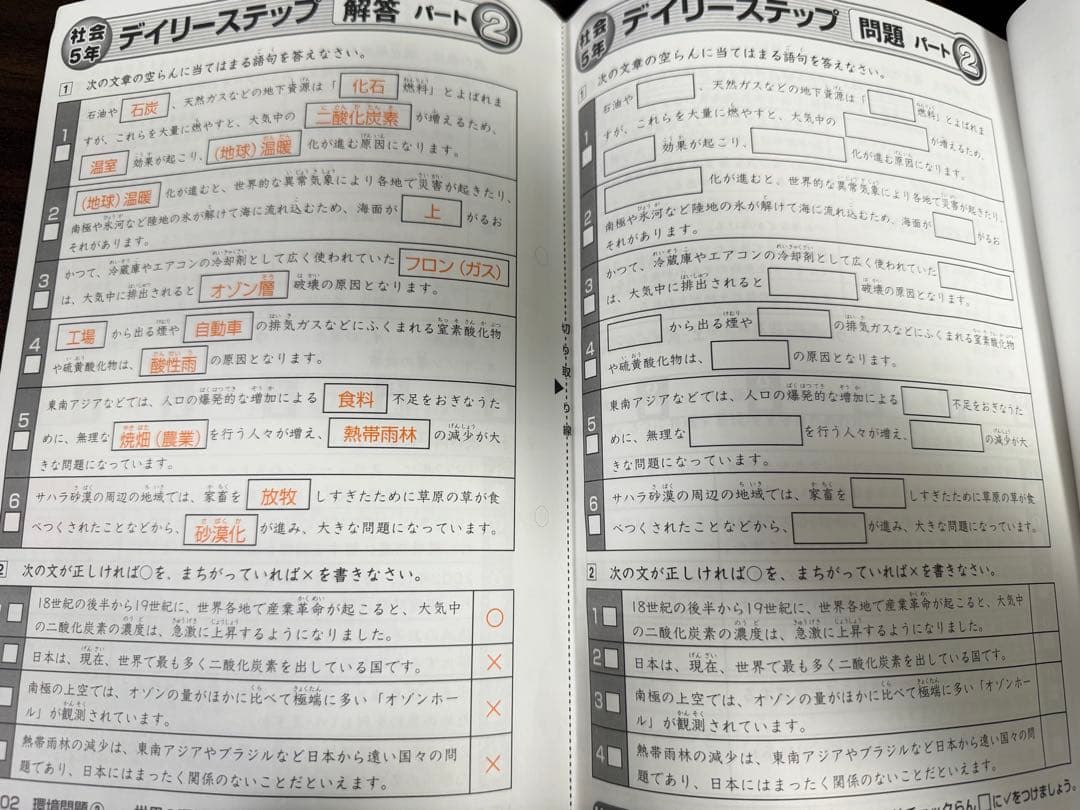 社会
5年
デイリーステップ 解答 パート 2
1 次の文章の空らんに当てはまる語句を答えなさい。
1 石油や 石炭 、天然ガスなどの地下資源は「 化石 燃料」とよばれま
すが、これらを大量に燃やすと、大気中の 二酸化炭素 が増えるため、
温室 効果が起こり、 (地球)温暖 化が進む原因になります。
2 (地球)温暖 化が進むと、世界的な異常気象により各地で災害が起きたり、
南極や氷河など陸地の氷が解けて海に流れ込むため、海面が 上 がるお
それがあります。
3 かつて、冷蔵庫やエアコンの冷却剤として広く使われていた フロン(ガス)
は、大気中に排出されると オゾン層 破壊の原因となります。
4 工場 から出る煙や 自動車 の排気ガスなどにふくまれる窒素酸化物
や硫黄酸化物は、 酸性雨 の原因となります。
5 東南アジアなどでは、人口の爆発的な増加による 食料 不足をおぎなうた
めに、無理な 焼畑(農業) を行う人々が増え、 熱帯雨林 の減少が大
きな問題になっています。
6 サハラ砂漠の周辺の地域では、家畜を 放牧 しすぎたために草原の草が食
べつくされたことなどから、 砂漠化 が進み、大きな問題になっています。
2 次の文が正しければ○を、まちがっていれば×を書きなさい。
18世紀の後半から19世紀に、世界各地で産業革命が起こると、大気中
の二酸化炭素の濃度は、急激に上昇するようになりました。 ○
日本は、現在、世界で最も多く二酸化炭素を出している国です。 ×
南極の上空では、オゾンの量がほかに比べて極端に多い「オゾンホー
ル」が観測されています。 ×
熱帯雨林の減少は、東南アジアやブラジルなど日本から遠い国々の問
題であり、日本にはまったく関係のないことだといえます。 ×
02 環境問題②
切り取り線
社会
5年
デイリーステップ 問題 パート 2
1 次の文章の空らんに当てはまる語句を答えなさい。
1 石油や 、天然ガスなどの地下資源は「 燃料」とよばれま
すが、これらを大量に燃やすと、大気中の が増えるため、
効果が起こり、 化が進む原因になります。
2 化が進むと、世界的な異常気象により各地で災害が起きたり、
南極や氷河など陸地の氷が解けて海に流れ込むため、海面が がるお
それがあります。
3 かつて、冷蔵庫やエアコンの冷却剤として広く使われていた
は、大気中に排出されると 破壊の原因となります。
4 から出る煙や の排気ガスなどにふくまれる窒素酸化物
や硫黄酸化物は、 の原因となります。
5 東南アジアなどでは、人口の爆発的な増加による 不足をおぎなうた
めに、無理な を行う人々が増え、 の減少が大
きな問題になっています。
6 サハラ砂漠の周辺の地域では、家畜を しすぎたために草原の草が食
べつくされたことなどから、 が進み、大きな問題になっています。
2 次の文が正しければ○を、まちがっていれば×を書きなさい。
1 18世紀の後半から19世紀に、世界各地で産業革命が起こると、大気中
の二酸化炭素の濃度は、急激に上昇するようになりました。
2 日本は、現在、世界で最も多く二酸化炭素を出している国です。
3 南極の上空では、オゾンの量がほかに比べて極端に多い「オゾンホー
ル」が観測されています。
4 熱帯雨林の減少は、東南アジアやブラジルなど日本から遠い国々の問
題であり、日本にはまったく関係のないことだといえます。
チェックらん□に✓をつけましょう。